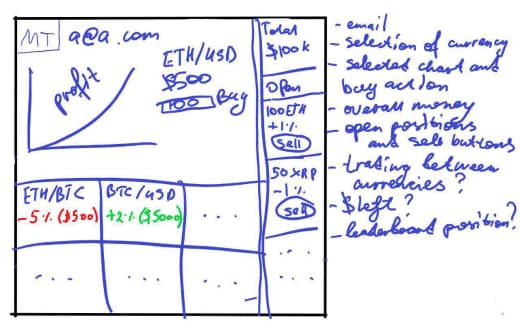 MT a@a.com
profit
ETH/USD
$500
100 Buy
ETH/BTC
-5% ($500)
BTC/USD
+2% ($5000)
...
... ... ...
Total
$100k
Open
100 ETH
+1%
Sell
50 XRP
-1%
Sell
...
...
- email
- selection of currency
- selected chart and
buy action
- overall money
- open positions
and sell buttons
- trading between
currencies?
- $ left?
- leaderboard position?